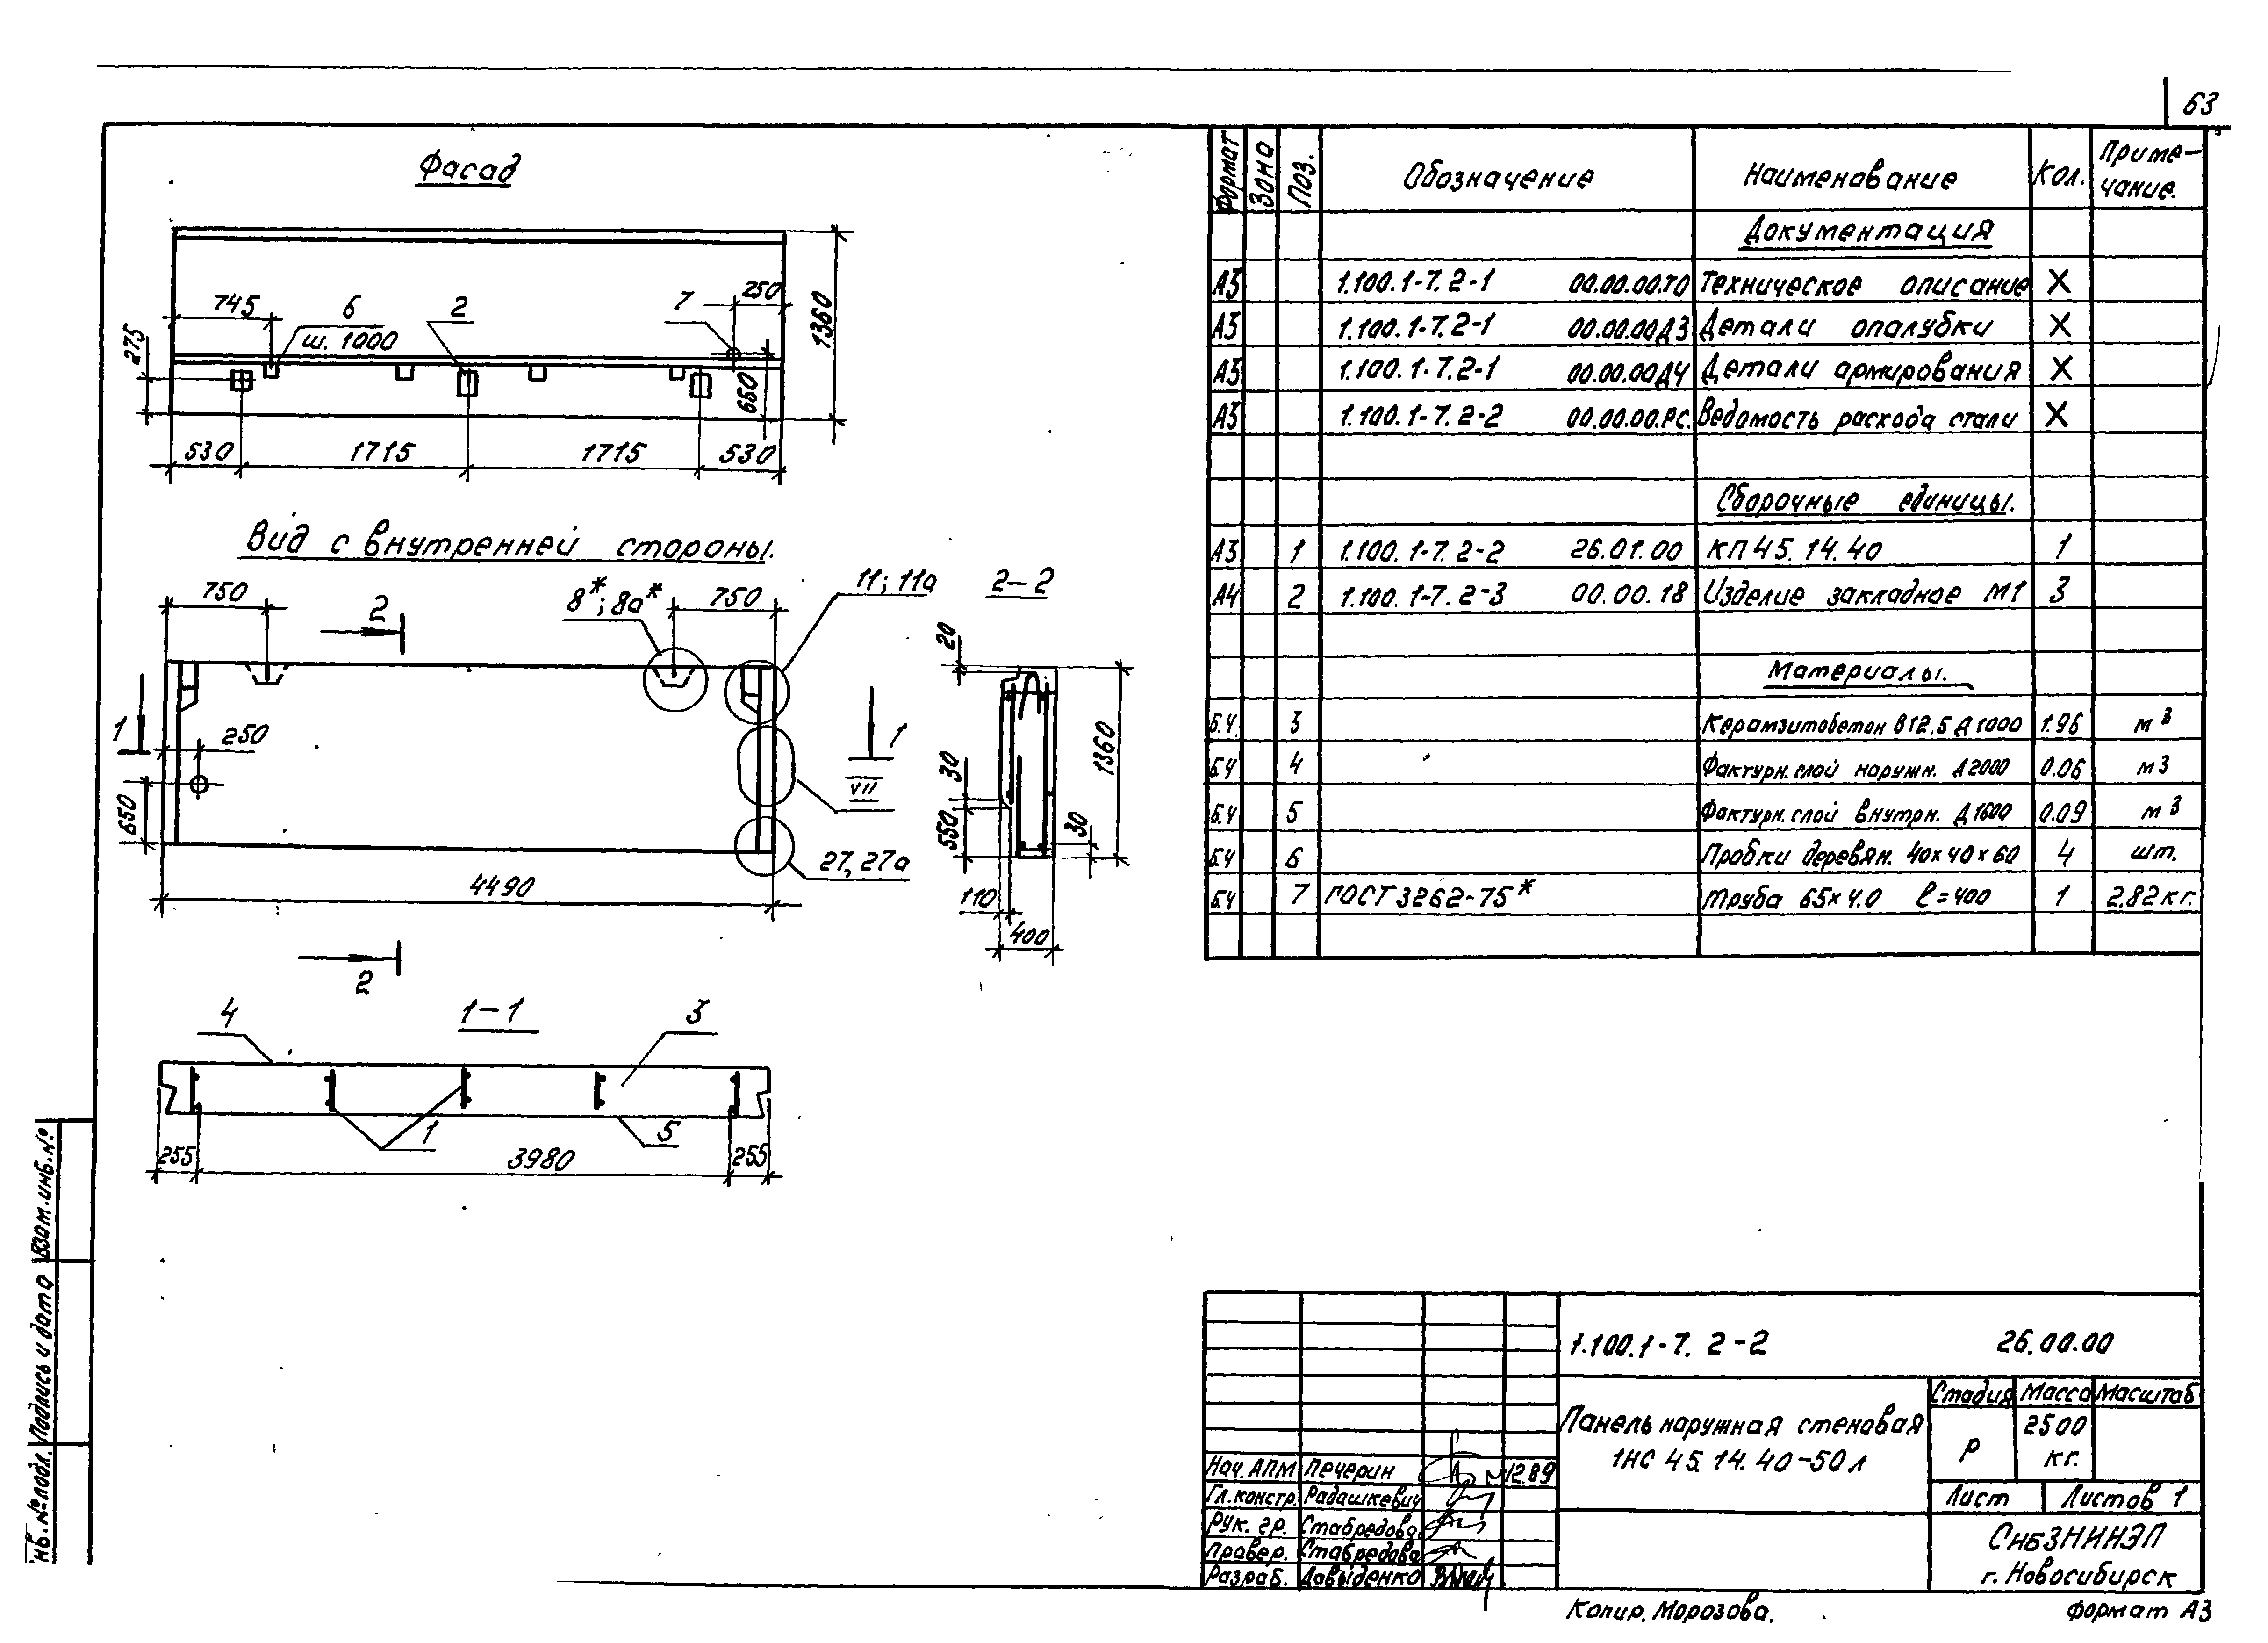 63
Фасад
745
6
ш. 1000
2
7
250
1360
275
660
530
1715
1715
530
Вид с внутренней стороны.
750
2
8*; 8а*
750
11; 11а
2-2
1
250
650
1
VII
27, 27а
4490
2
20
1360
30
550
30
110
400
1-1
4
3
1
5
255
3980
255
Формат Зона Поз. Обозначение Наименование Кол. Приме-
чание.
Документация
А3 1.100.1-7.2-1 00.00.00ТО Техническое описание X
А3 1.100.1-7.2-1 00.00.00Д3 Детали опалубки X
А3 1.100.1-7.2-1 00.00.00Д4 Детали армирования X
А3 1.100.1-7.2-2 00.00.00.РС. Ведомость расхода стали X
Сборочные единицы.
А3 1 1.100.1-7.2-2 26.01.00 КП 45.14.40 1
А4 2 1.100.1-7.2-3 00.00.18 Изделие закладное М1 3
Материалы.
Б.Ч. 3 Керамзитобетон В12,5 Д1000 1.96 м3
Б.Ч 4 Фактурн. слой наружн. Д2000 0.06 м3
Б.Ч 5 Фактурн. слой внутрн. Д1600 0.09 м3
Б.Ч 6 Пробки деревян. 40х40х60 4 шт.
Б.Ч 7 ГОСТ 3262-75* Труба 65х4.0 ℓ=400 1 2.82 кг.
1.100.1-7. 2-2 26.00.00
Панель наружная стеновая
1НС 45.14.40-50л
Стадия Масса Масштаб
Р 2500
кг.
Лист Листов 1
СибЗНИИЭП
г. Новосибирск
Нач. АПМ Печерин 12.89
Гл. констр. Радашкевич
Рук. гр. Стабредова
Провер. Стабредова
Разраб. Давыденко
Копир. Морозова.
Формат А3
Инв. № подл. Подпись и дата Взам. инв. №